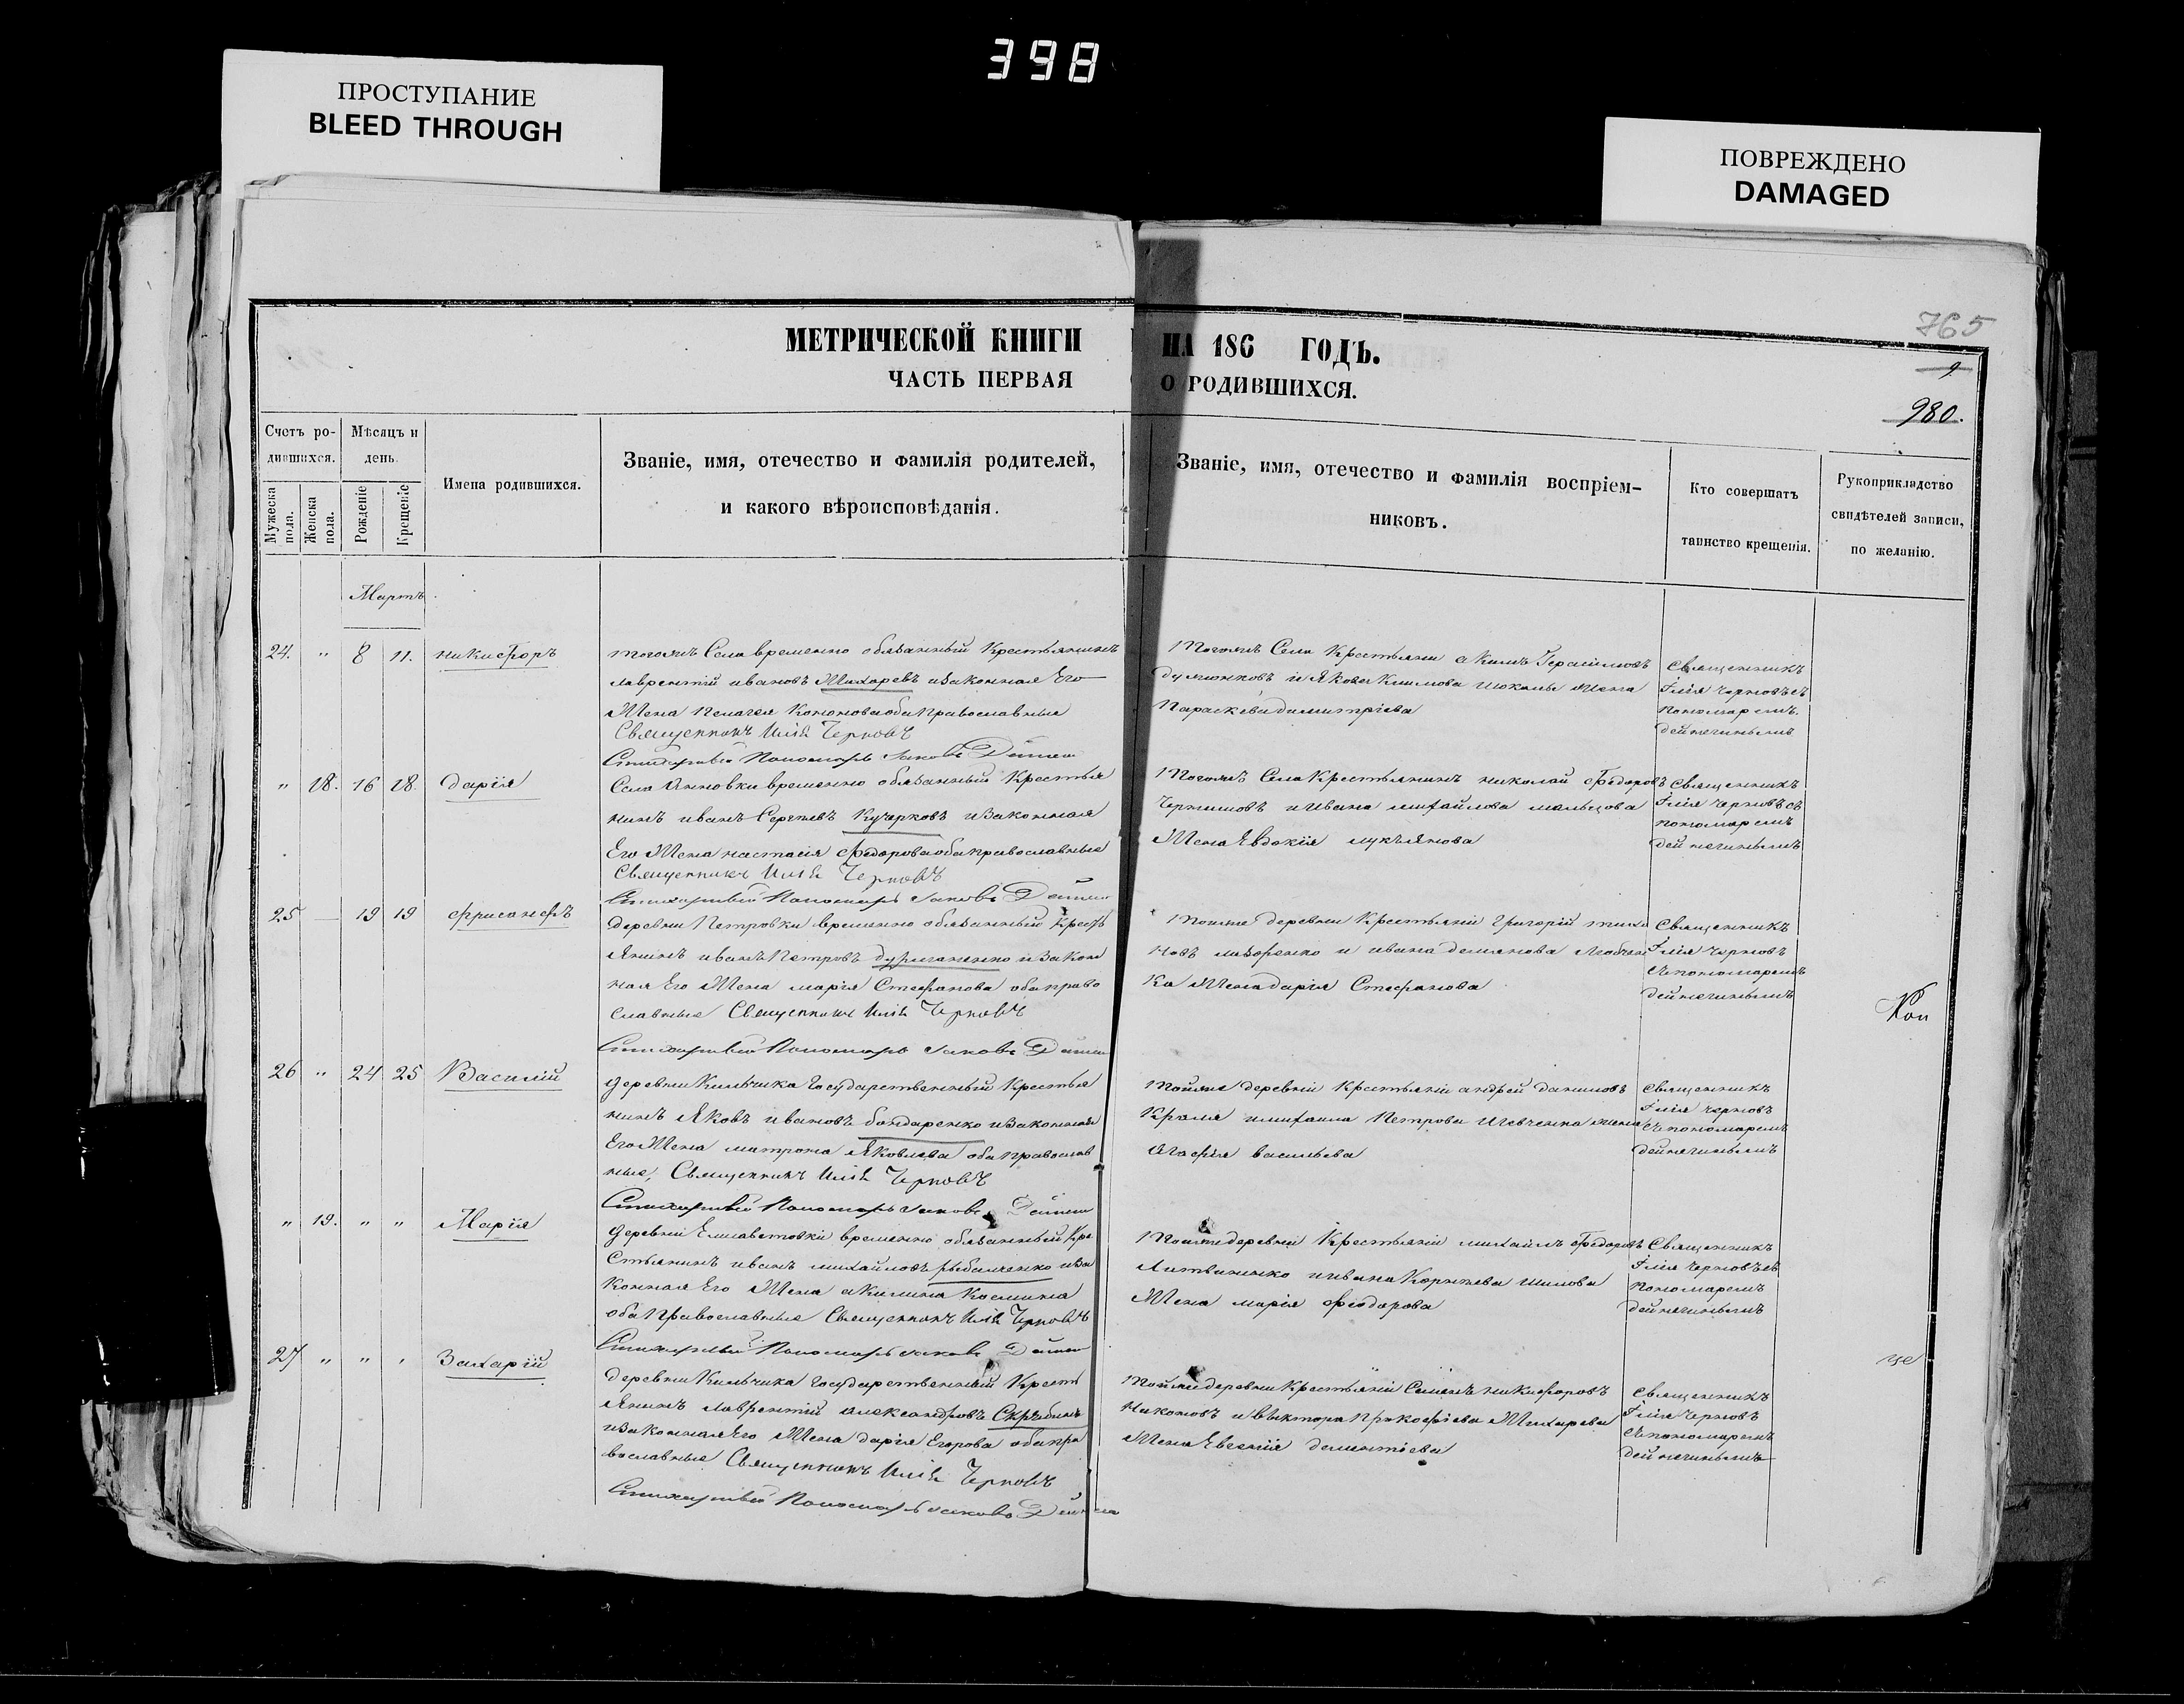 398
ПРОСТУПАНИЕ
BLEED THROUGH
ПОВРЕЖДЕНО
DAMAGED
765
9
980.
МЕТРИЧЕСКОЙ КНИГИ НА 186 ГОДЪ.
ЧАСТЬ ПЕРВАЯ О РОДИВШИХСЯ.
Счетъ ро-
дившихся.
Мужеска пола.
Женска пола.
Мѣсяцъ и
день.
Рожденіе
Крещеніе
Имена родившихся.
Званіе, имя, отечество и фамилія родителей,
и какого вѣроисповѣданія.
Званіе, имя, отечество и фамилія воспріем-
никовъ.
Кто совершатъ
таинство крещенія.
Рукоприкладство
свидѣтелей записи,
по желанію.
Мартъ
24. " 8 11. никифоръ
тогожъ Села временно обязанный Крестьянинъ
лаврентій ивановъ Жихаревъ изаконная Его
Жена пелагея Кононова оба православные
Священникъ Илія Черновъ
Стихарный Пономарь Іаковъ
Тогожъ Села Крестьяни акимъ Герасимовъ
Параскева димитріева
Священникъ
Iлія Черновъ съ
пономаремъ
дейнечинымъ
" 18. 16 18. дарія
Села Янновки временно обязанный Крестья
нинъ иванъ Сергѣевъ Кучерковъ изаконная
Его Жена настасія федорова оба православные
Священникъ Илія Черновъ
Стихарный Пономарь Іаковъ
Тогожъ Села Крестьянинъ николай Федоровъ
и ивана михайлова мальцова
Жена Евдокія лукъянова
Священникъ
Iлія Черновъ съ
пономаремъ
дейнечинымъ
25 — 19 19 фрисанфъ
деревни Петровки временно обязанный Кресть
янинъ иванъ Петровъ изакон
ная Его Жена марія Стефанова оба право
славные Священникъ Илія Черновъ
Стихарный Пономарь Іаковъ
Тойже деревни Крестьяни Григорій
и ивана демянова
ка Жена дарія Стефанова
Священникъ
Iлія Черновъ
съ пономаремъ
дейнечинымъ
Коп
26 " 24 25 Василій
деревни Кильчика Государственный Крестья
нинъ Яковъ ивановъ бондаренко изаконная
Его Жена матрона Яковлева оба православ
ные, Священникъ Илія Черновъ
Стихарный Пономарь Іаковъ
Тойже деревни Крестьяни андрей даниловъ
Кроля имихаила Петрова Шевченка жена
Агафія васильева
Священникъ
Iлія Черновъ
съ пономаремъ
дейнечинымъ
" 19. " " Марія
деревни Елисаветовки временно обязанный Кре
стьянинъ иванъ михайловъ рыбалченко иза
конная Его Жена акилина Космина
оба Православные Священникъ Илія Черновъ
Стихарный Пономарь Іаковъ
Тойже деревни Крестьяни михайлъ Федоровъ
Литвиненко иивана Корнѣева шилова
Жена марія феодорова
Священникъ
Iлія Черновъ съ
пономаремъ
дейнечинымъ
27 " " " Захарій
деревни Кильчика Государственный Крест
янинъ лаврентій александровъ Скрыбинъ
изаконная Его Жена дарія Егорова оба пра
вославные Священникъ Илія Черновъ
Стихарный Пономарь Іаковъ
Тойже деревни Крестьяни Семенъ никифоровъ
Никоновъ и виктора прокофіева Жихарева
Жена Евгенія дементіева
Священникъ
Iлія Черновъ
съ пономаремъ
дейнечинымъ